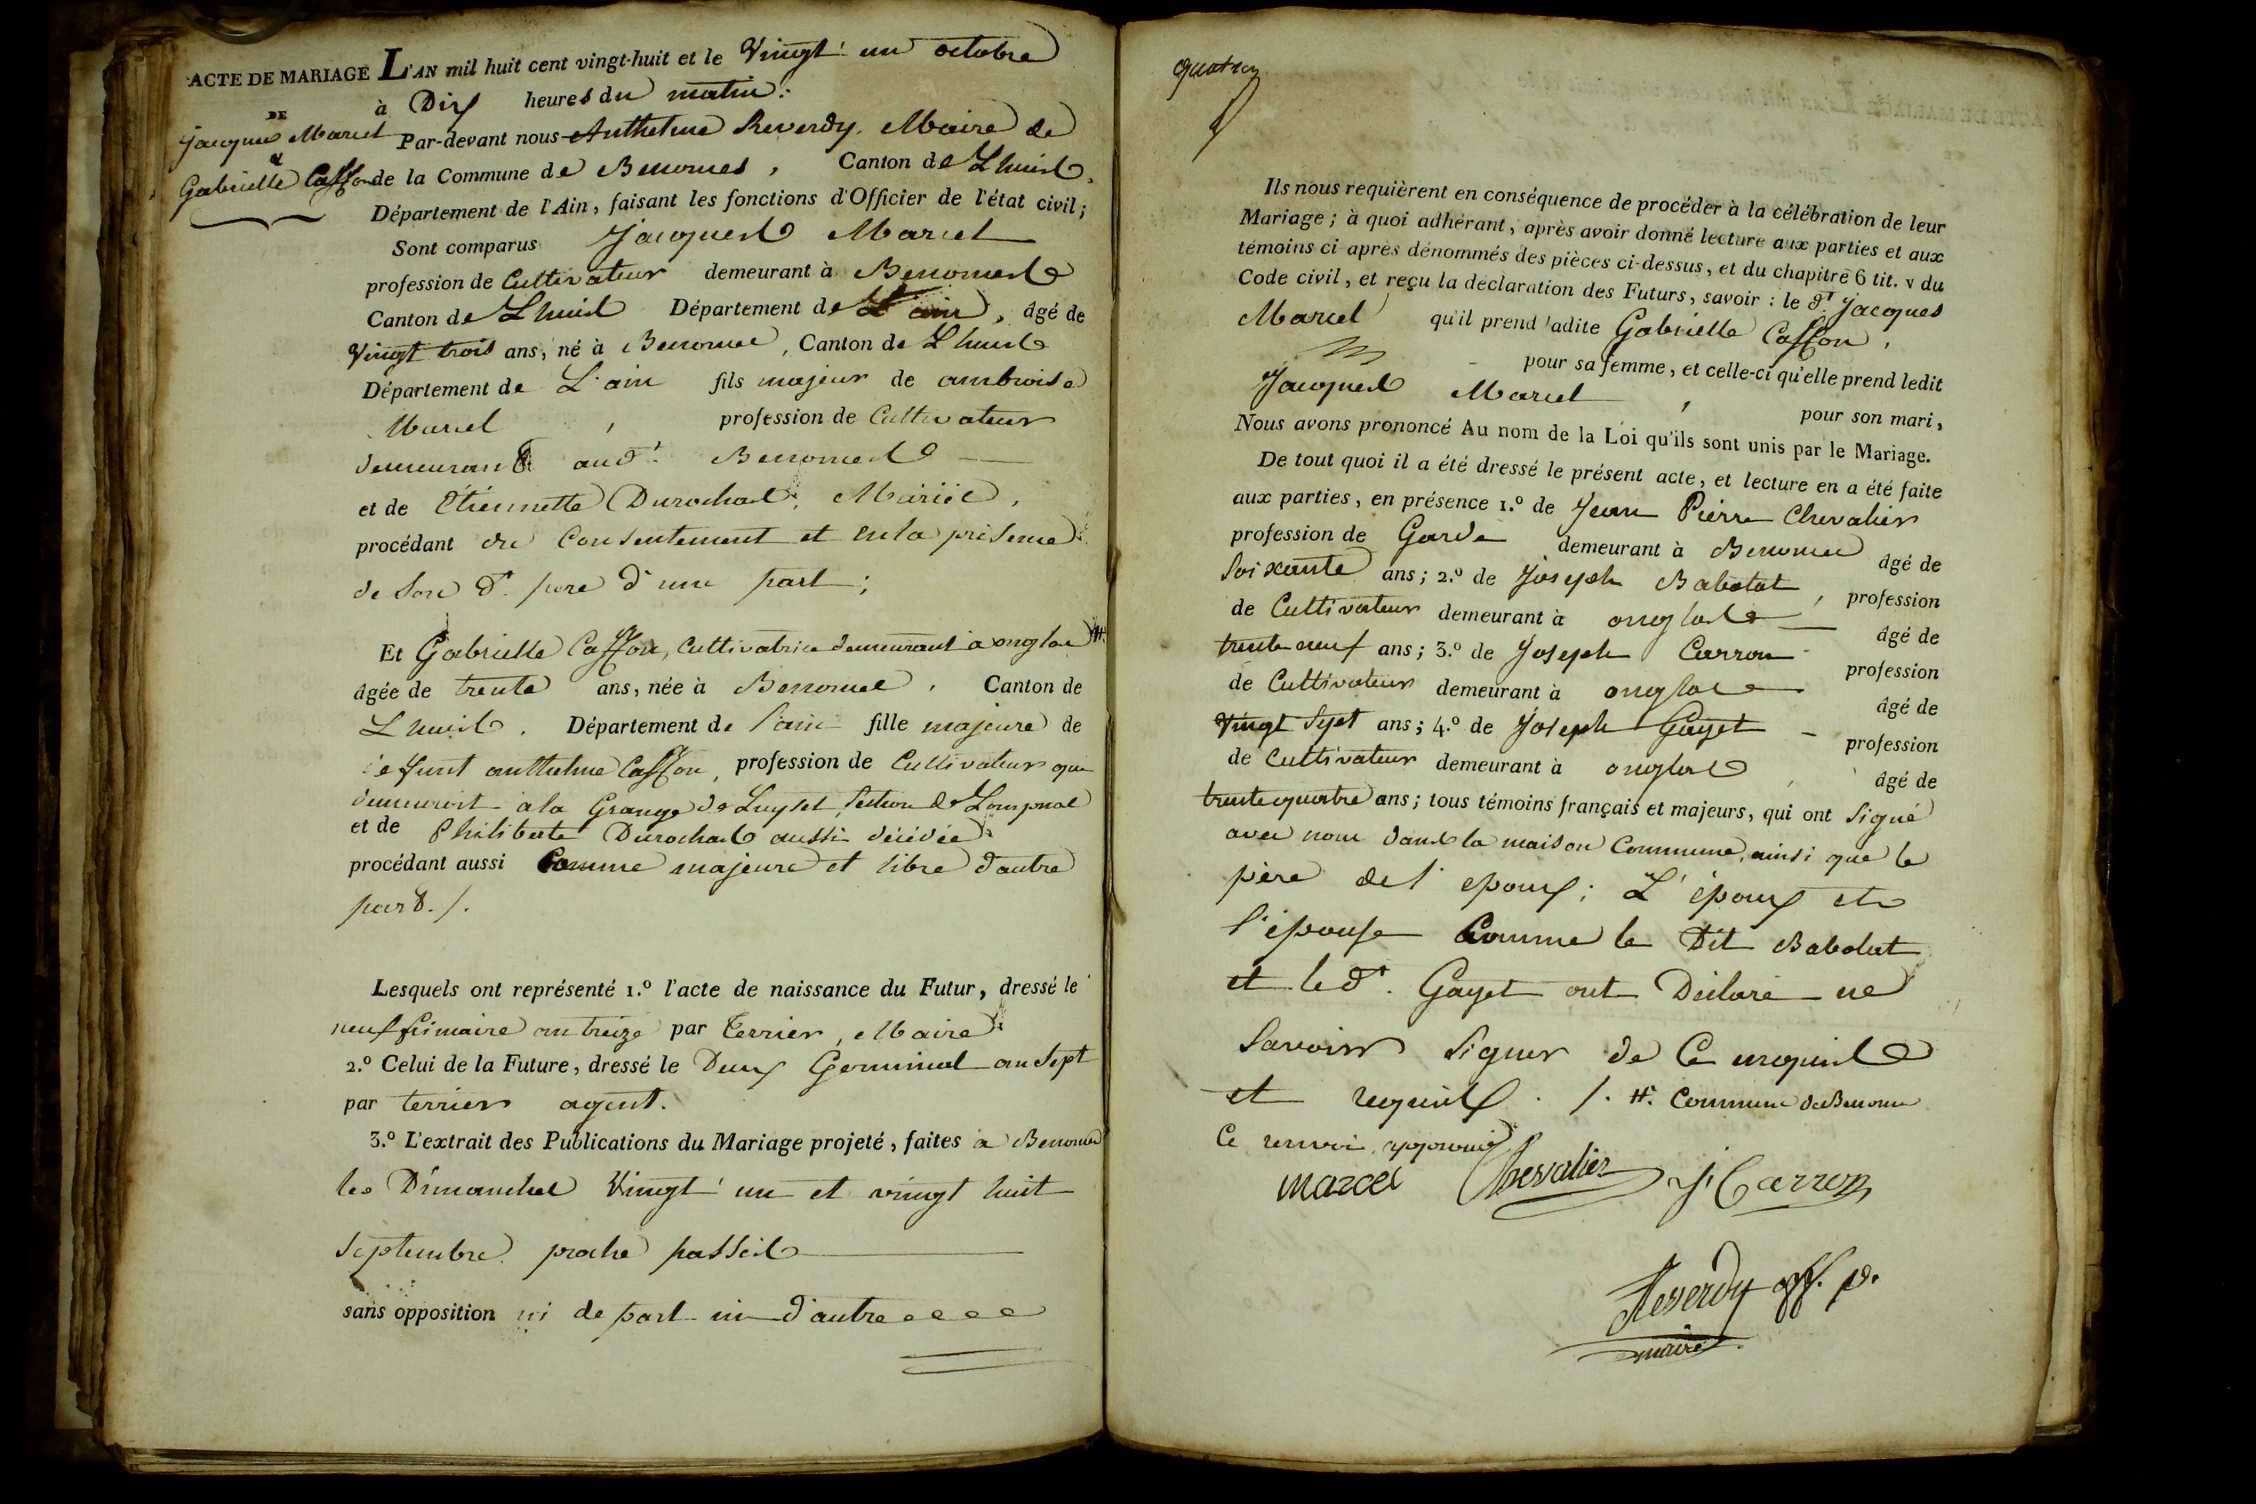 ACTE DE MARIAGE L'AN mil huit cent vingt-huit et le Vingt un octobre
DE à Dix heures du matin.
jacques Marcel Par-devant nous Anthelme Reverdy, Maire de
et
Gabrielle Caffon de la Commune de Benonces, Canton de Lhuis,
Département de l'Ain, faisant les fonctions d'Officier de l'état civil;
Sont comparus Jacques Marcel
profession de Cultivateur demeurant à Benonces
Canton de Lhuis Département de L'ain, âgé de
Vingt trois ans, né à Benonces, Canton de Lhuis
Département de L'ain fils majeur de ambroise
Marcel, profession de Cultivateur
demeurant aud.t Benonces
et de Etiennette Durochat, Mariés,
procédant du Consentement et en la présence
de son d.t pere d'une part;
Et Gabrielle Caffon, Cultivatrice demeurant à onglas #.
âgée de trente ans, née à Benonces, Canton de
Lhuis. Département de l'ain fille majeure de
défunt anthelme Caffon, profession de Cultivateur qui
demeuroit à la Grange de Luyset, section de Lompnas
et de Philiberte Durochat aussi décédée
procédant aussi Comme majeure et libre d'autre
part. /.
Lesquels ont représenté 1.º l'acte de naissance du Futur, dressé le
neuf frimaire an treize par terrier, Maire
2.º Celui de la Future, dressé le Deux Germinal an sept
par terrier agent.
3.º L'extrait des Publications du Mariage projeté, faites à Benonces
les Dimanches Vingt un et vingt huit
septembre proche passés
sans opposition ni de part ni d'autre
Ils nous requièrent en conséquence de procéder à la célébration de leur
Mariage; à quoi adhérant, après avoir donné lecture aux parties et aux
témoins ci-après dénommés des pièces ci-dessus, et du chapitre 6 tit. v du
Code civil, et reçu la déclaration des Futurs, savoir : le d.t Jacques
Marcel qu'il prend ladite Gabrielle Caffon,
pour sa femme, et celle-ci qu'elle prend ledit
Jacques Marcel, pour son mari,
Nous avons prononcé Au nom de la Loi qu'ils sont unis par le Mariage.
De tout quoi il a été dressé le présent acte, et lecture en a été faite
aux parties, en présence 1.º de Jean Pierre Chevalier
profession de Garde demeurant à Benonces âgé de
soixante ans; 2.º de Joseph Babolat, profession
de Cultivateur demeurant à onglas âgé de
trente neuf ans; 3.º de Joseph Carron profession
de Cultivateur demeurant à onglas âgé de
Vingt sept ans; 4.º de Joseph Gayet profession
de Cultivateur demeurant à onglas, âgé de
trente quatre ans; tous témoins français et majeurs, qui ont signé
avec nous dans la maison Commune, ainsi que le
père de l'epoux; L'époux et
l'épouse Comme le Dit Babolat
et le d.t Gayet ont Déclaré ne
savoir signer de Ce enquis
et requis. /. #. Commune de Benonces
Ce renvoi approuvé
marcel Chevalier J. Carron
Reverdy off. p.
maire